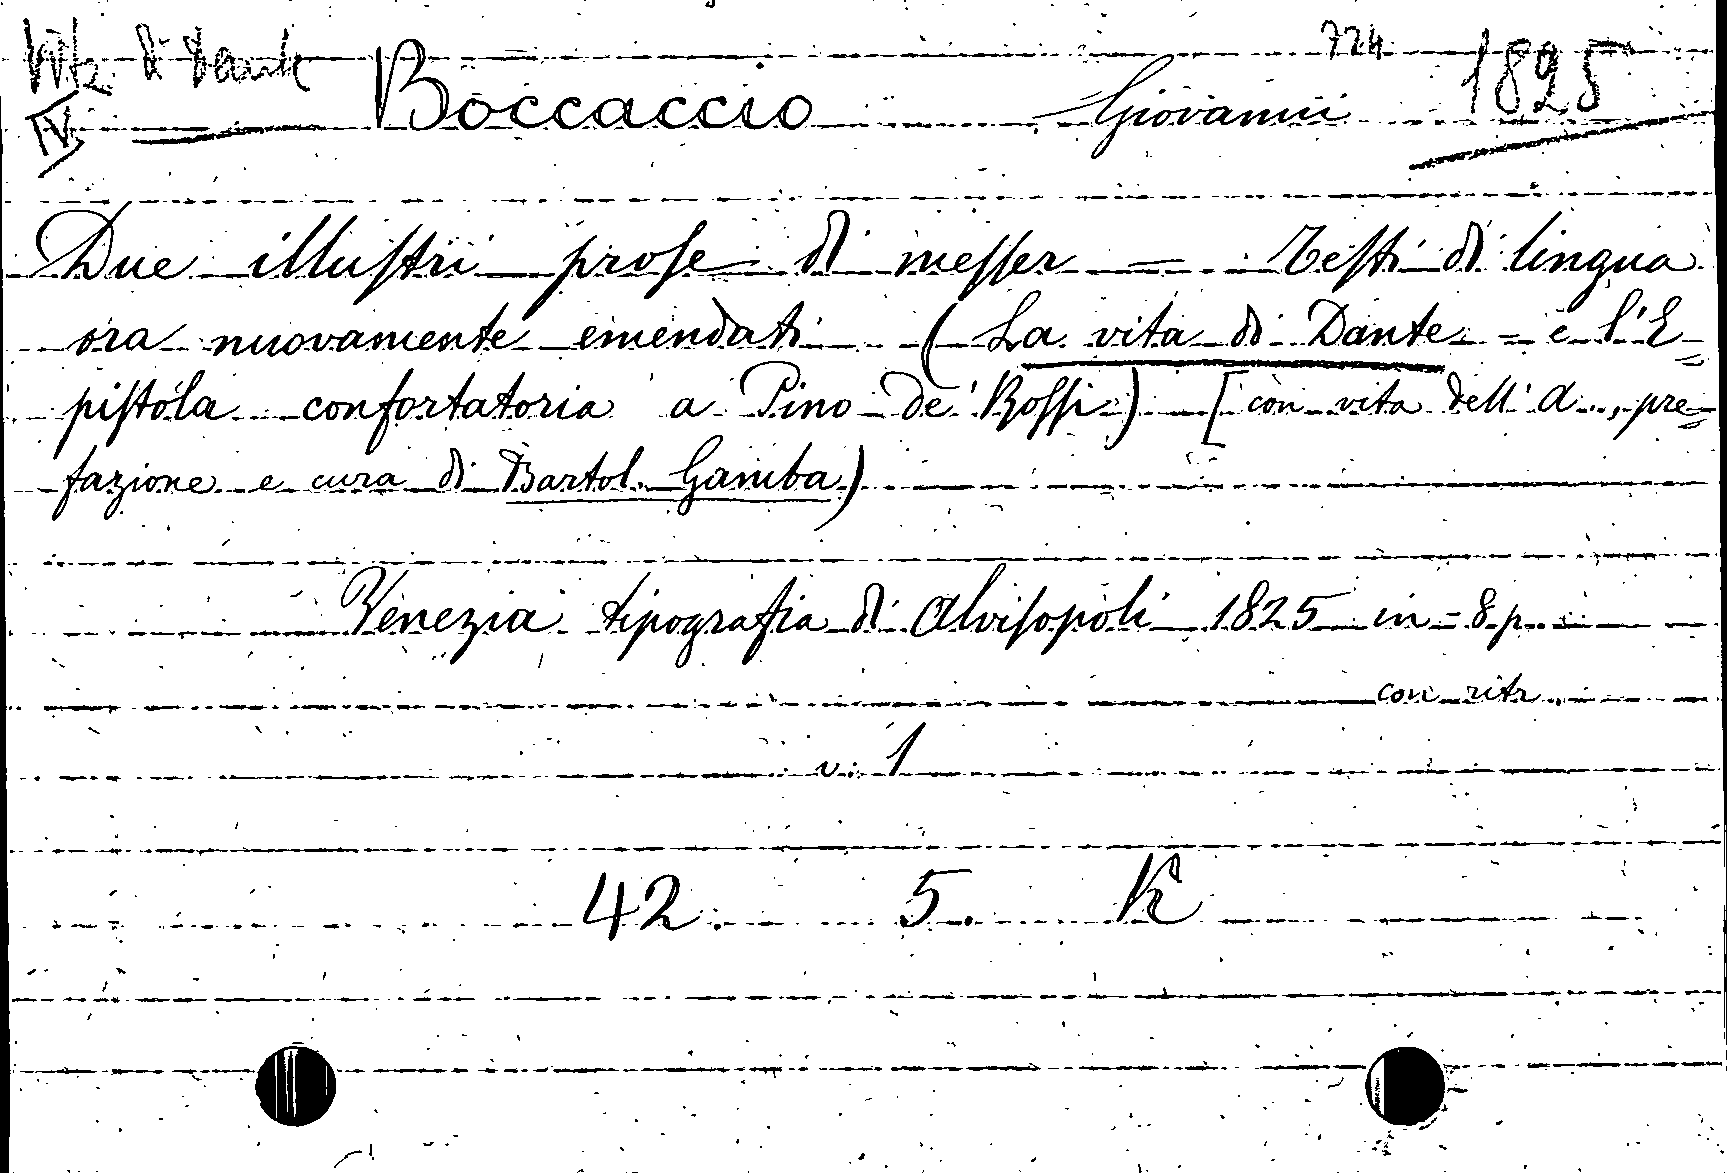 Vita di Dante 724 1825
IV Boccaccio Giovanni
Due illustri prose di messer = Testi di lingua
ora nuovamente emendati (La vita di Dante = e l'E=
pistola confortatoria a Pino de' Rossi) [con vita dell'A., pre=
fazione e cura di Bartol. Gamba)
Venezia tipografia di Alvisopoli 1825 in=8 p.
con ritr.
v. 1
42. 5. K